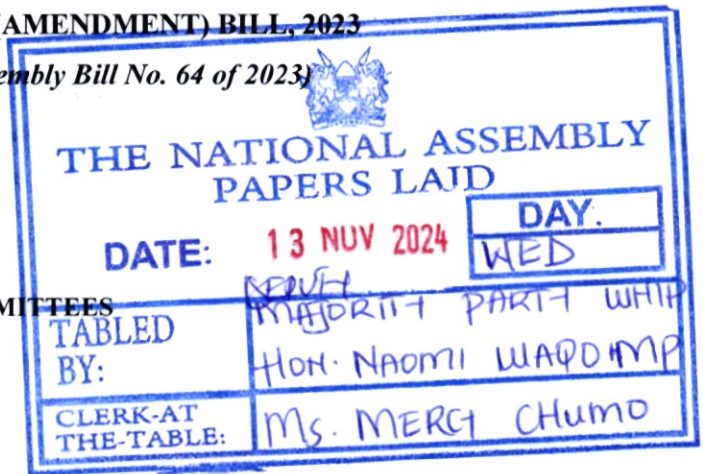 (AMENDMENT) BILL, 2023
embly Bill No. 64 of 2023)
THE NATIONAL ASSEMBLY
PAPERS LAID
DATE: 13 NOV 2024
DAY.
WED
MITTEES
TABLED BY:
DEPUTY
MAJORITY PARTY WHIP
HON. NAOMI WAQO MP
CLERK-AT THE-TABLE:
Ms. MERCY CHUMO